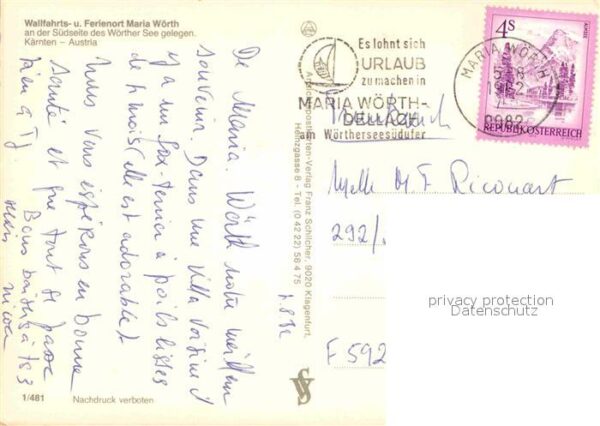 Wallfahrts- u. Ferienort Maria Wörth
an der Südseite des Wörther See gelegen.
Kärnten – Austria
De Maria Wörth notre meilleur
souvenir. Dans une Villa Voisine il
y a un fox-terrier à poils lisses
de mois (elle est adorable)
Nous vous espérons en bonne
santé et que tout se passe
bien à
Bons baisers à
1/481
Nachdruck verboten
Alpenkunstpostkarten-Verlag Franz Schilcher, 9020 Klagenfurt,
Heinzgasse 8 - Tel. (0 42 22) 56 4 75
Es lohnt sich
URLAUB
zu machen in
MARIA WÖRTH-
DELLACH
am Wörtherseesüdufer
MARIA WÖRTH
9082
4S
REPUBLIK ÖSTERREICH
Melle M F Ricouart
292/
F 592
privacy protection
Datenschutz